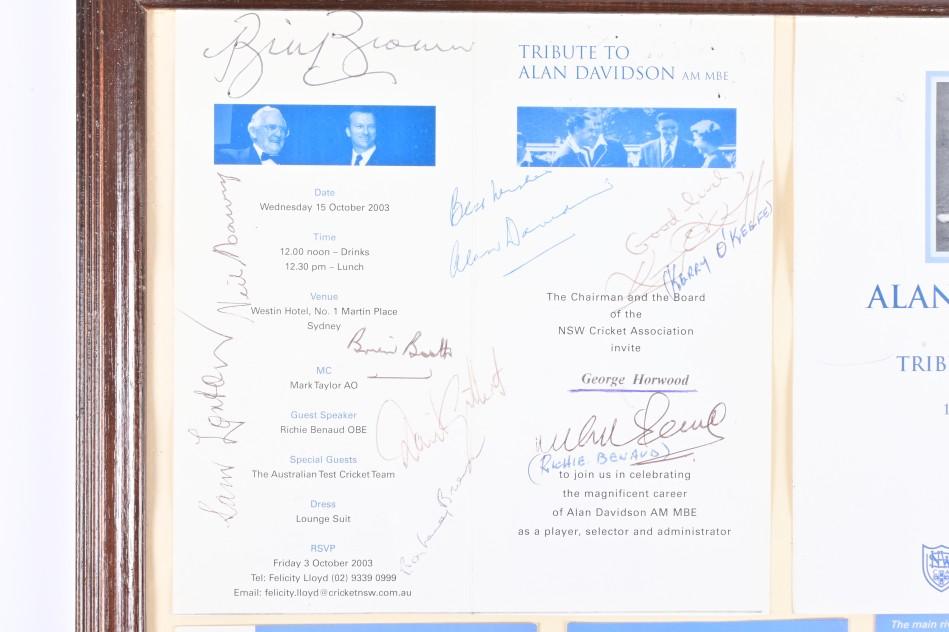 Bill Brown
Date
Wednesday 15 October 2003
Time
12.00 noon – Drinks
12.30 pm – Lunch
Venue
Westin Hotel, No. 1 Martin Place
Sydney
Brian Booth
MC
Mark Taylor AO
Guest Speaker
Richie Benaud OBE
Special Guests
The Australian Test Cricket Team
Dress
Lounge Suit
RSVP
Friday 3 October 2003
Tel: Felicity Lloyd (02) 9339 0999
Email: felicity.lloyd@cricketnsw.com.au
Neil Harvey
Sam Loxton
TRIBUTE TO
ALAN DAVIDSON AM MBE
Best wishes
Alan Davidson
Good luck
(KERRY O'KEEFE)
The Chairman and the Board
of the
NSW Cricket Association
invite
George Horwood
(RICHIE BENAUD)
to join us in celebrating
the magnificent career
of Alan Davidson AM MBE
as a player, selector and administrator
ALAN
TRIB
1
The main ri